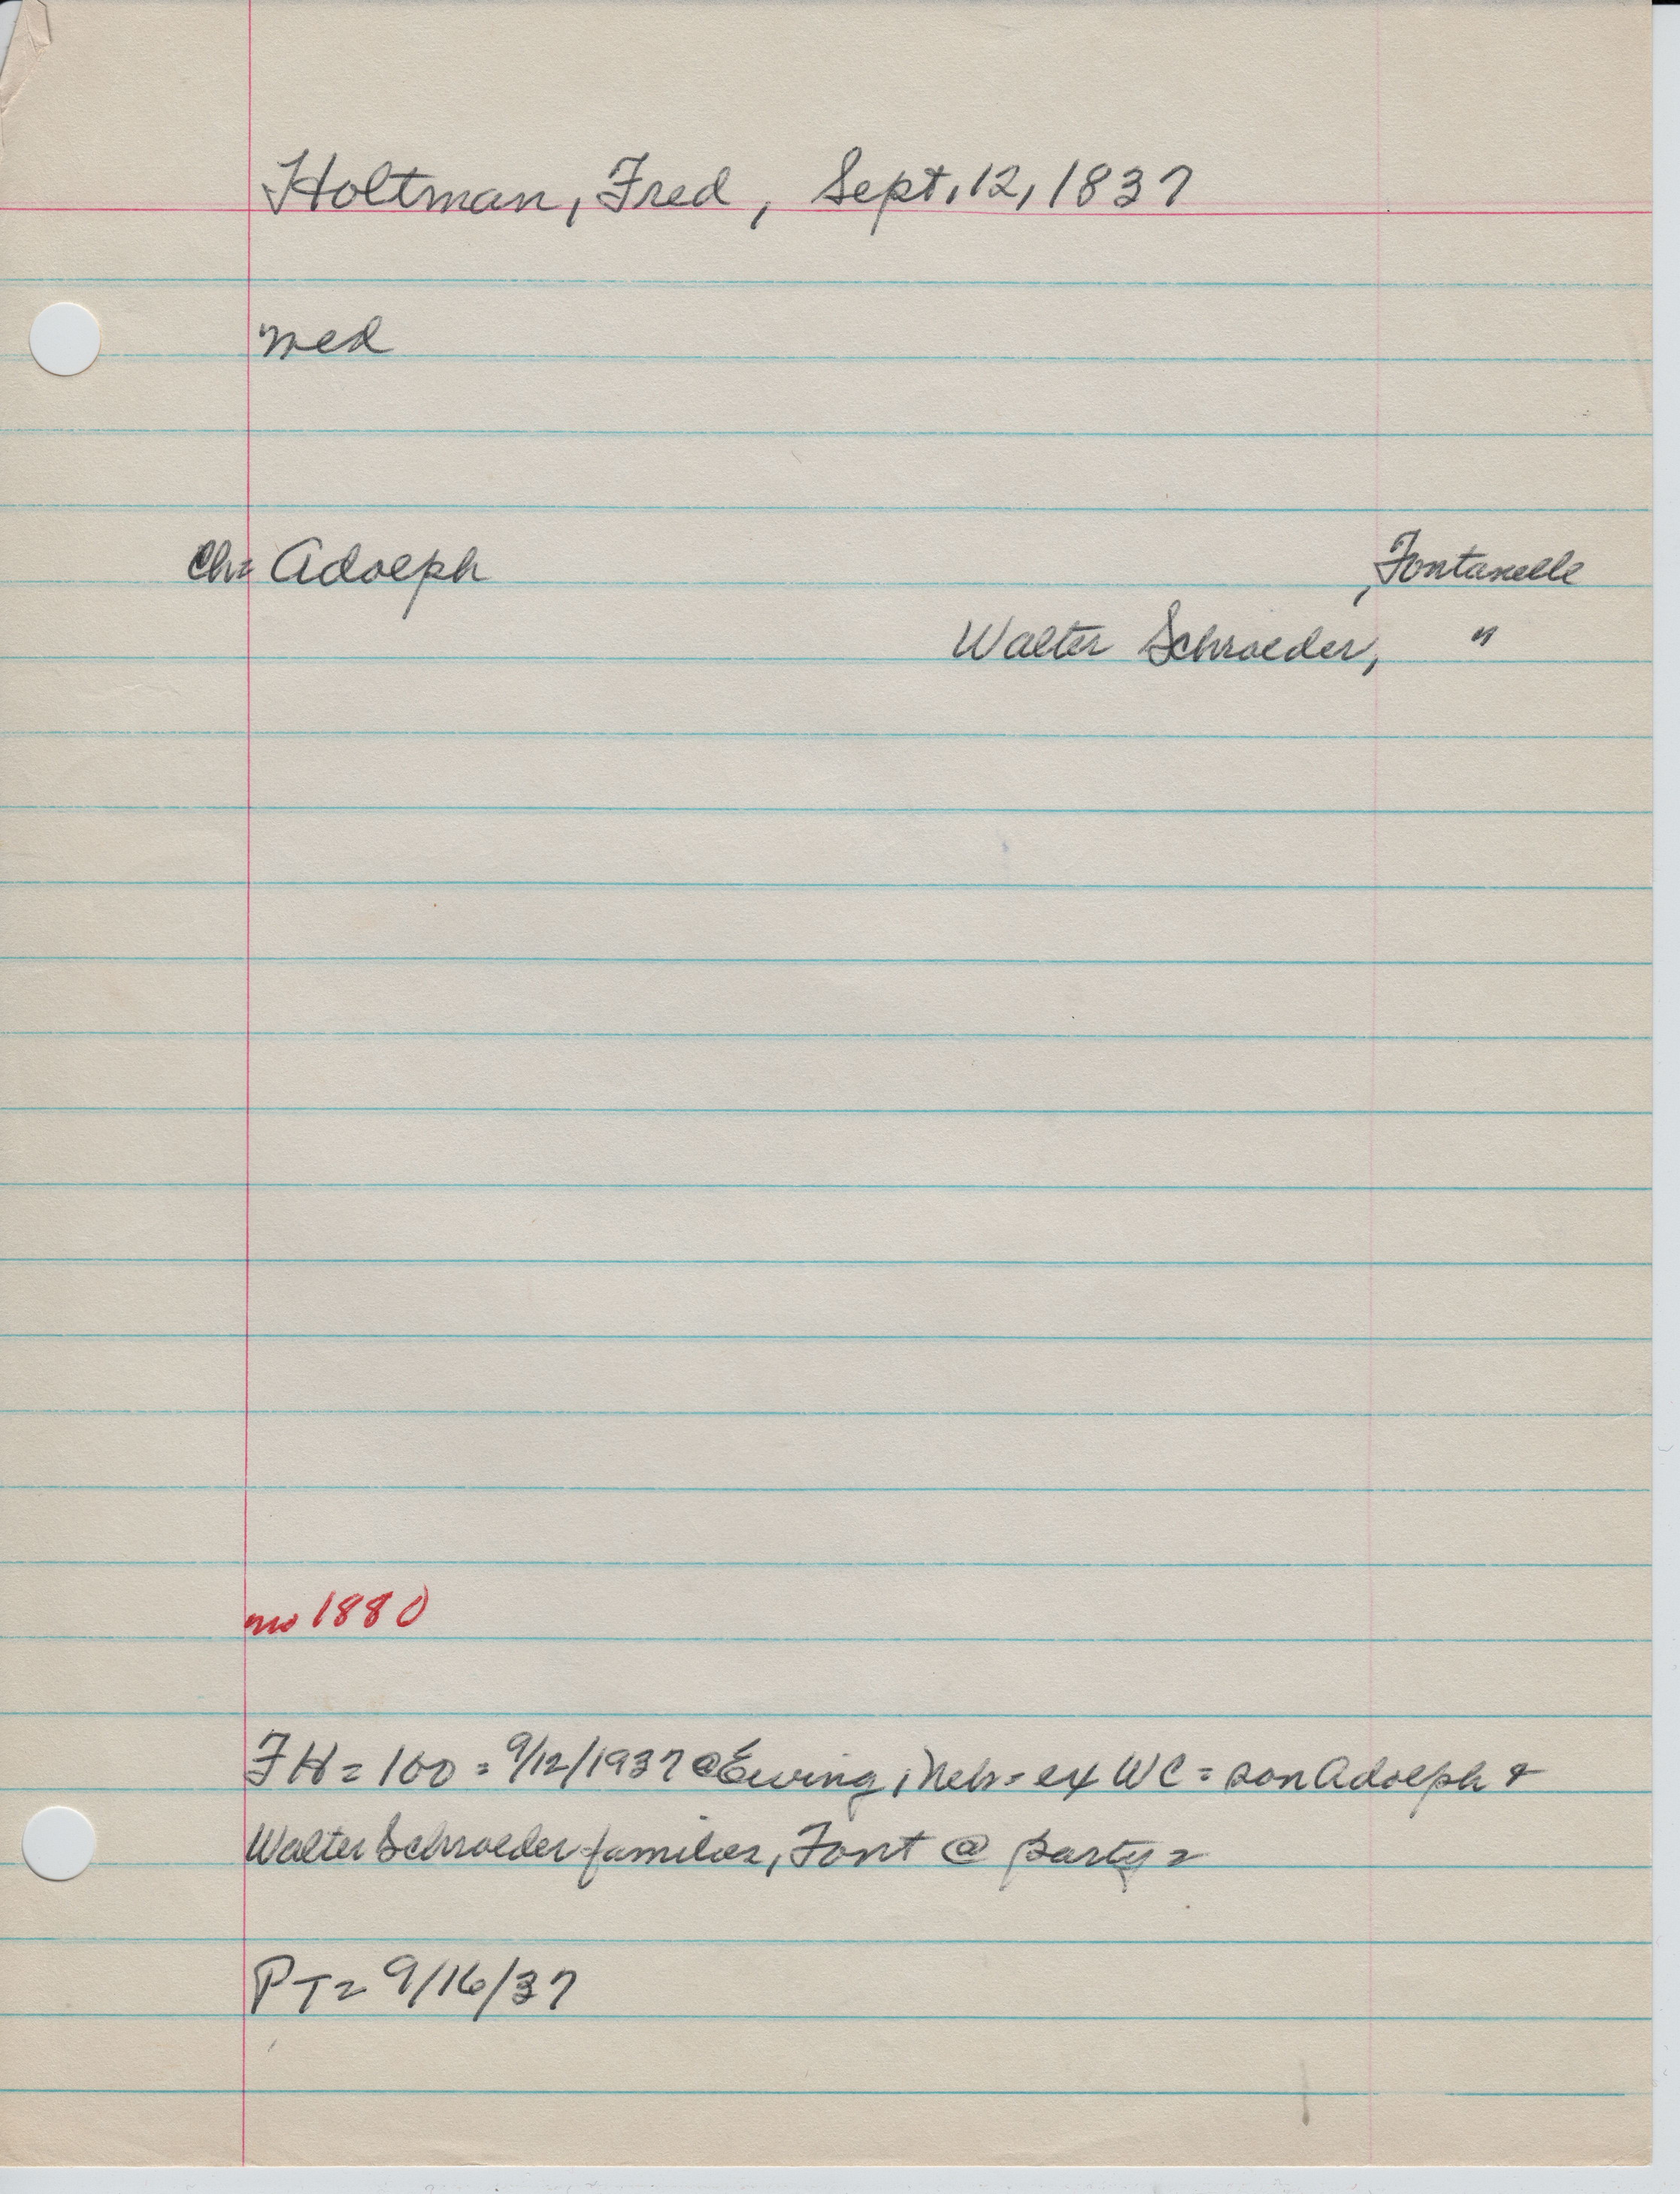 Holtman, Fred, Sept. 12, 1837
med
Ch= Adolph , Fontanelle
Walter Schroeder, "
no 1880
FH = 100 = 9/12/1937 @ Ewing, Neb = ex WC = son Adolph &
Walter Schroeder families, Font @ party =
PT = 9/16/37